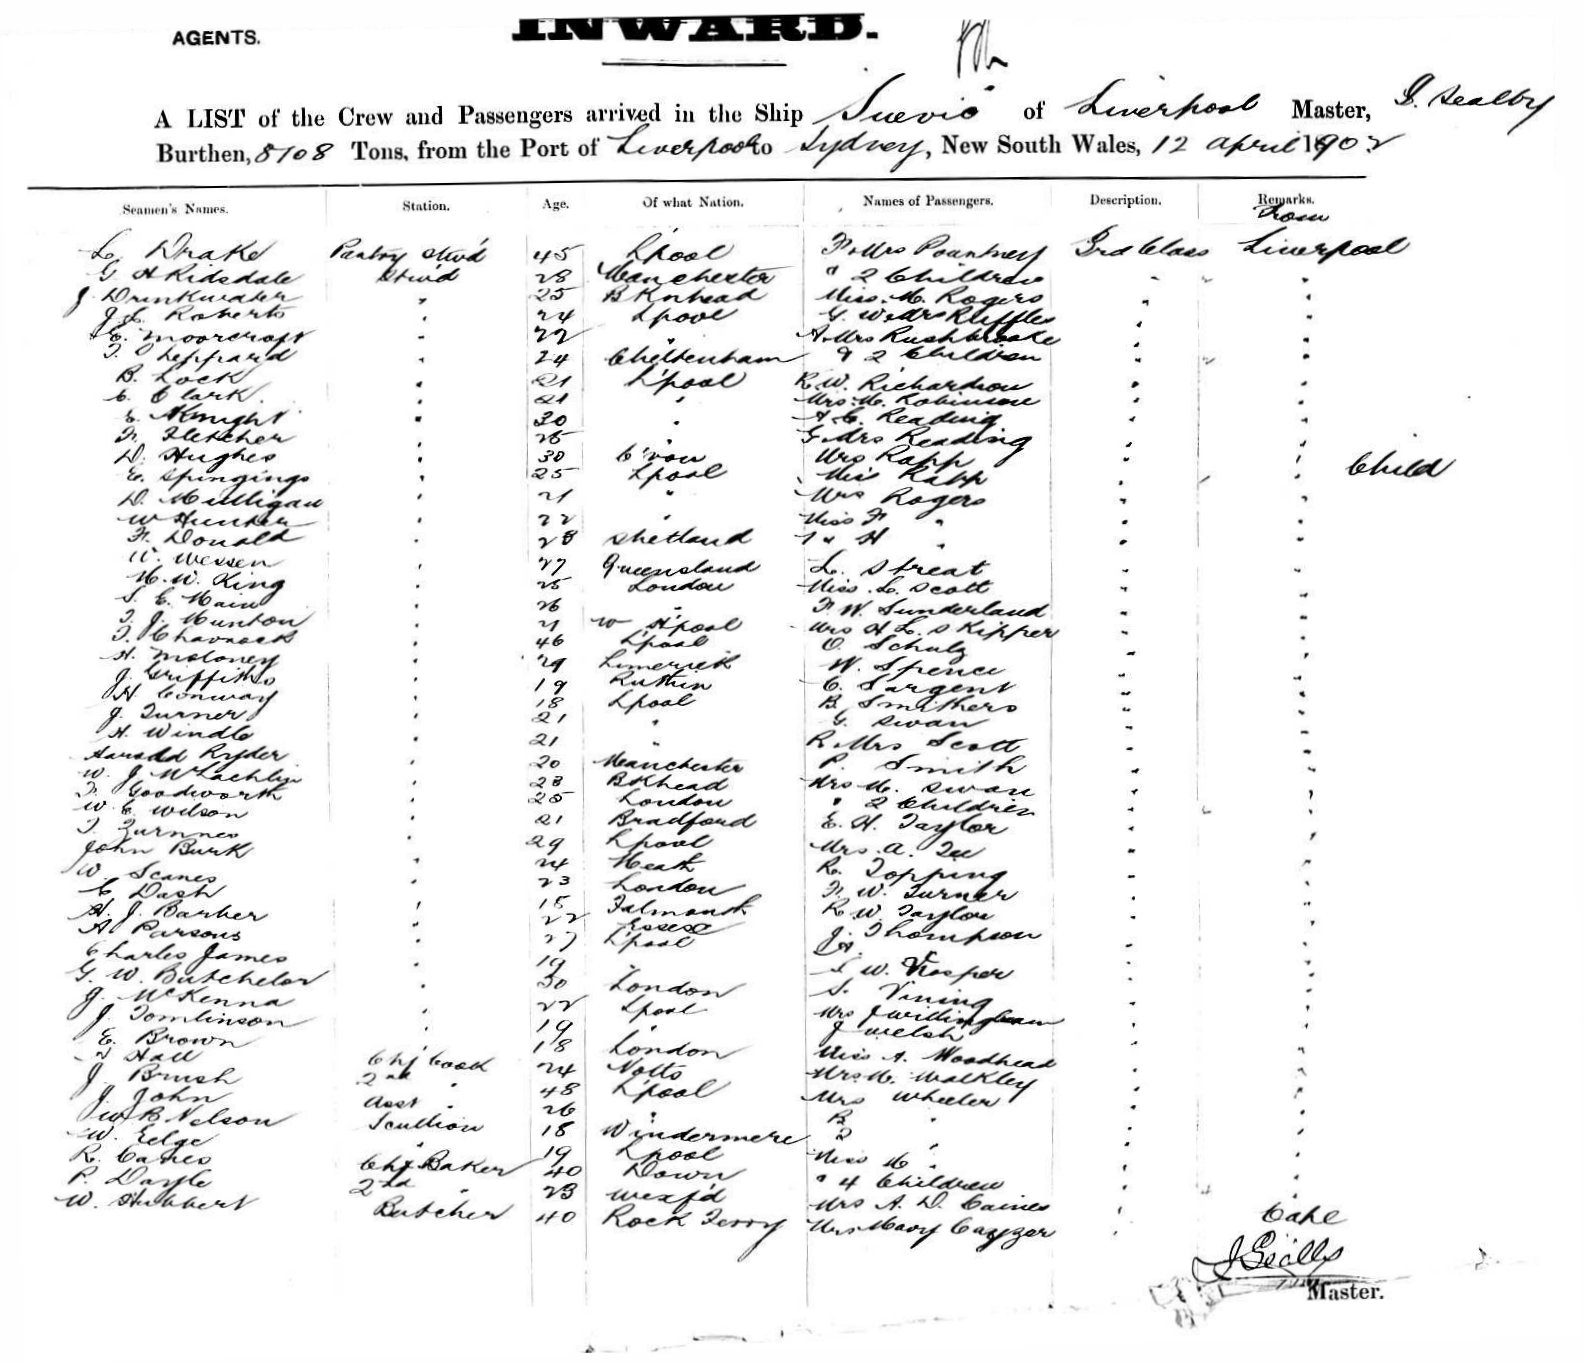 AGENTS.
INWARD.
A LIST of the Crew and Passengers arrived in the Ship Suevic of Liverpool Master, J. Sealby
Burthen, 8108 Tons, from the Port of Liverpool to Sydney, New South Wales, 12 April 1902
Seamen's Names. Station. Age. Of what Nation. Names of Passengers. Description. Remarks.
From
L. Drake Pantry Stew'd 45 L'pool F & Mrs Pountney 3rd Class Liverpool
G H Ridsdale Stew'd 28 Manchester " 2 Children " "
J. Drinkwater " 25 B Knhead Miss. M. Rogers " "
J L Roberts " 24 L'pool G. W & Mrs Ruffles " "
E. Moorcroft " 22 " A & Mrs Rushbrooke " "
T Sheppard " 24 Cheltenham & 2 Children " "
B. Lock " 21 L'pool R. W. Richardson " "
C. Clark. " 21 " Mrs. M. Robinson " "
E. Knight " 30 " A. C. Reading " "
F. Fletcher " 25 " G & Mrs Reading " "
D. Hughes " 30 C'von Mrs Rapp " "
E. Spingings " 25 L'pool Miss Rapp " " Child
D. Mulligan " 21 " Mrs Rogers " "
W Hunter " 22 " Miss F " " "
F. Donald " 28 Shetland " H " " "
W. Wessen " 27 Queensland L. Streat " "
H. W. King " 25 London Miss. L. Scott " "
S. E. Main " 26 " F W. Sunderland " "
T. J. Munton " 21 W H'pool Mrs H L. Skipper " "
T. Charnock " 46 L'pool O. Schulz " "
H. Moloney " 29 Limerick W. Spence " "
J. Griffiths " 19 Ruthin C. Sargent " "
H. Conway " 18 L'pool B. Smithers " "
J. Turner " 21 " G. Swan " "
H. Windle " 21 " R & Mrs Scott " "
Harold Ryder " 20 Manchester P. Smith " "
W. J McLachlin " 23 BKhead Mrs M. Swan " "
F. Goodworth " 25 London " 2 Children " "
W. E Wilson " 21 Bradford E. H. Taylor " "
T. " 29 L'pool Mrs. A. Tee " "
John Burk " 24 Meath R. Topping " "
W. Scanes " 23 London F. W. Turner " "
C Dash " 18 Falmouth R. W. Taylor " "
H. J. Barber " 22 Essex J. Thompson " "
A Parsons " 27 L'pool " "
Charles James " 19 " W. Vosper " "
G. W. Butchelor " 30 London S. Vining " "
J. McKenna " 22 L'pool Mrs J Willingham " "
J. Tomlinson " 19 " J Welsh " "
E. Brown " 18 London Miss A. Woodhead " "
Hall Chf Cook 24 Notts Mrs M. Walkley " "
J. Brush 2nd " 48 L'pool Mrs Wheeler " "
J. John Asst " 26 " B " " "
W B Nelson Scullion 18 Windermere " " "
W. Edge " 19 L'pool Miss M " " "
R. Caires Chf Baker 40 Down " 4 Children " "
P. Doyle 2nd " 23 Wexf'd Mrs A. D. Caines " "
W. Hubbert Butcher 40 Rock Ferry Mrs Mary Cayzer " Cape
Master.